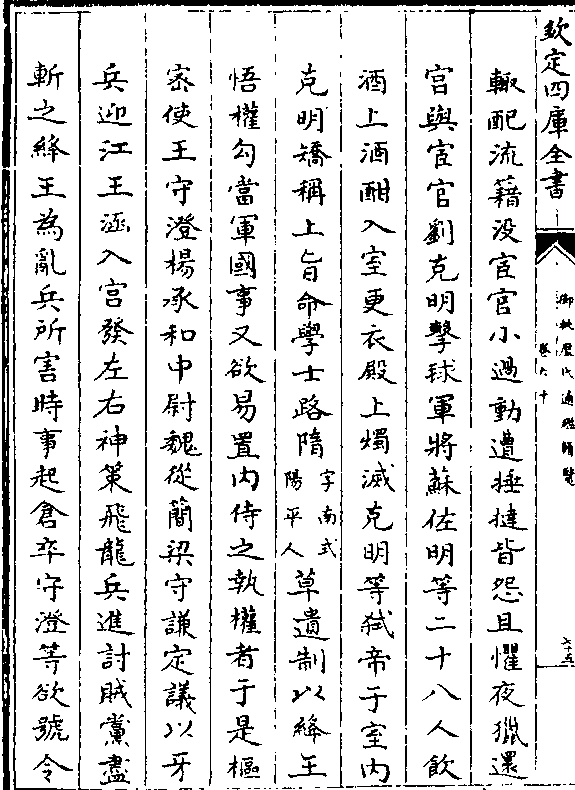 欽定四庫全書
御批歷代通鑑輯覽
卷六十
七十五
輙配流籍没宦官小過動遭捶撻皆怨且懼夜獵還
宮與宦官劉克明擊球軍將蘇佐明等二十八人飲
酒上酒酣入室更衣殿上燭滅克明等弑帝于室内
克明矯稱上旨命學士路隋字南式陽平人草遺制以絳王
悟權勾當軍國事又欲易置内侍之執權者于是樞
宻使王守澄楊承和中尉魏從簡梁守謙定議以牙
兵迎江王涵入宮發左右神策飛龍兵進討賊黨盡
斬之絳王為亂兵所害時事起倉卒守澄等欲號令